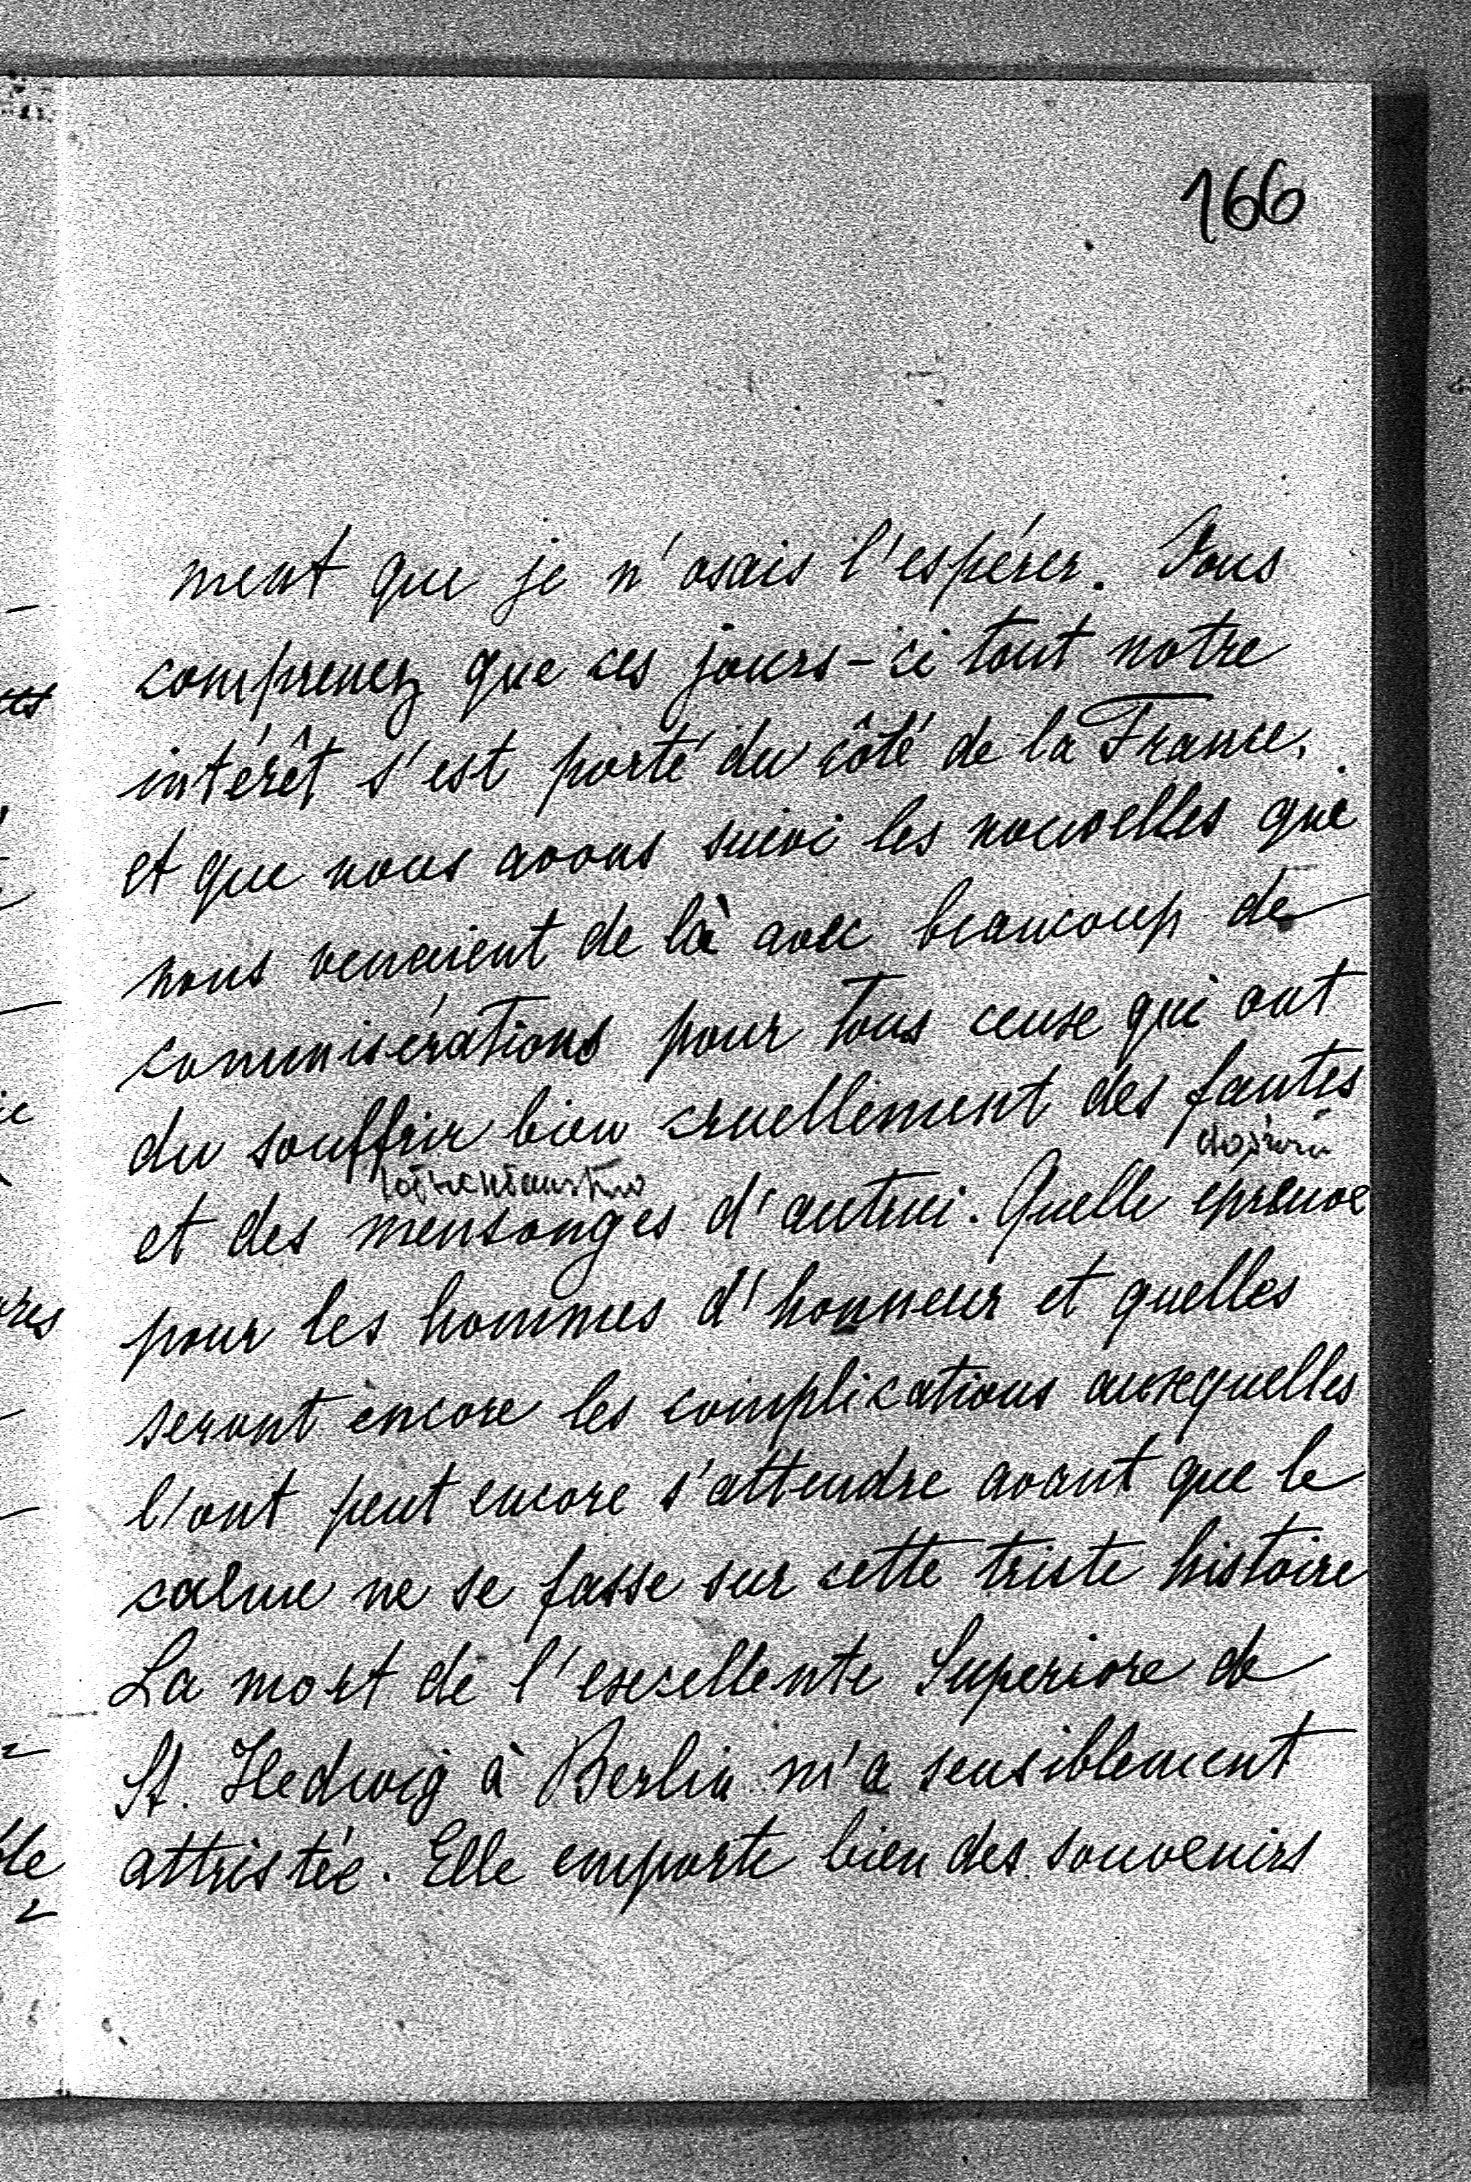 166
ment que je n'osais l'espérer. Vous
comprenez que ces jours-ci tout notre
intérêt s'est porté du côté de la France,
et que nous avons suivi les nouvelles que
nous venaient de là avec beaucoup de
commisérations pour tous ceuse qui ont
du souffrir bien cruellement des fautes
et des mensonges d'autrui. Quelle épreuve
pour les hommes d'honneur et quelles
seront encore les complications auxquelles
l'ont peut encore s'attendre avant que le
calme ne se fasse sur cette triste histoire
La mort de l'excellente Superiore de
St. Hedwig à Berlin m'a sensiblement
attristée. Elle emporte bien des souvenirs